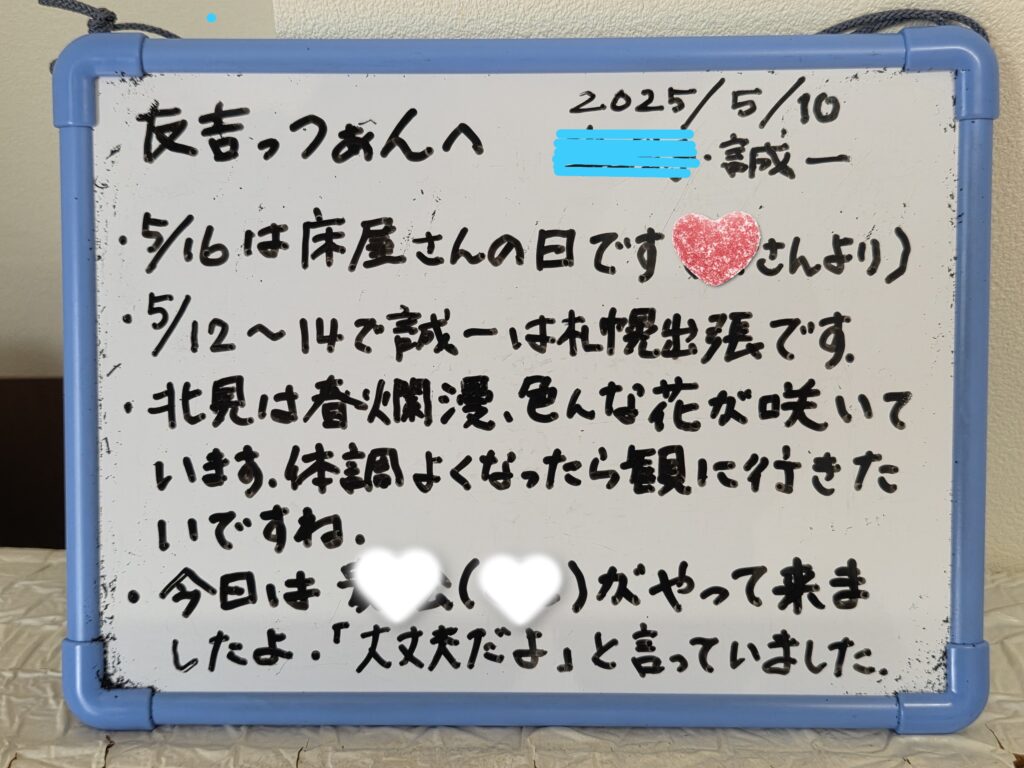 友吉っつぁんへ
2025/5/10
・誠一
・5/16は床屋さんの日です
さんより)
・5/12～14で誠一は札幌出張です.
・北見は春爛漫、色んな花が咲いて
います.体調よくなったら観に行きた
いですね.
・今日は
(
)がやって来ま
したよ.「大丈夫だよ」と言っていました.